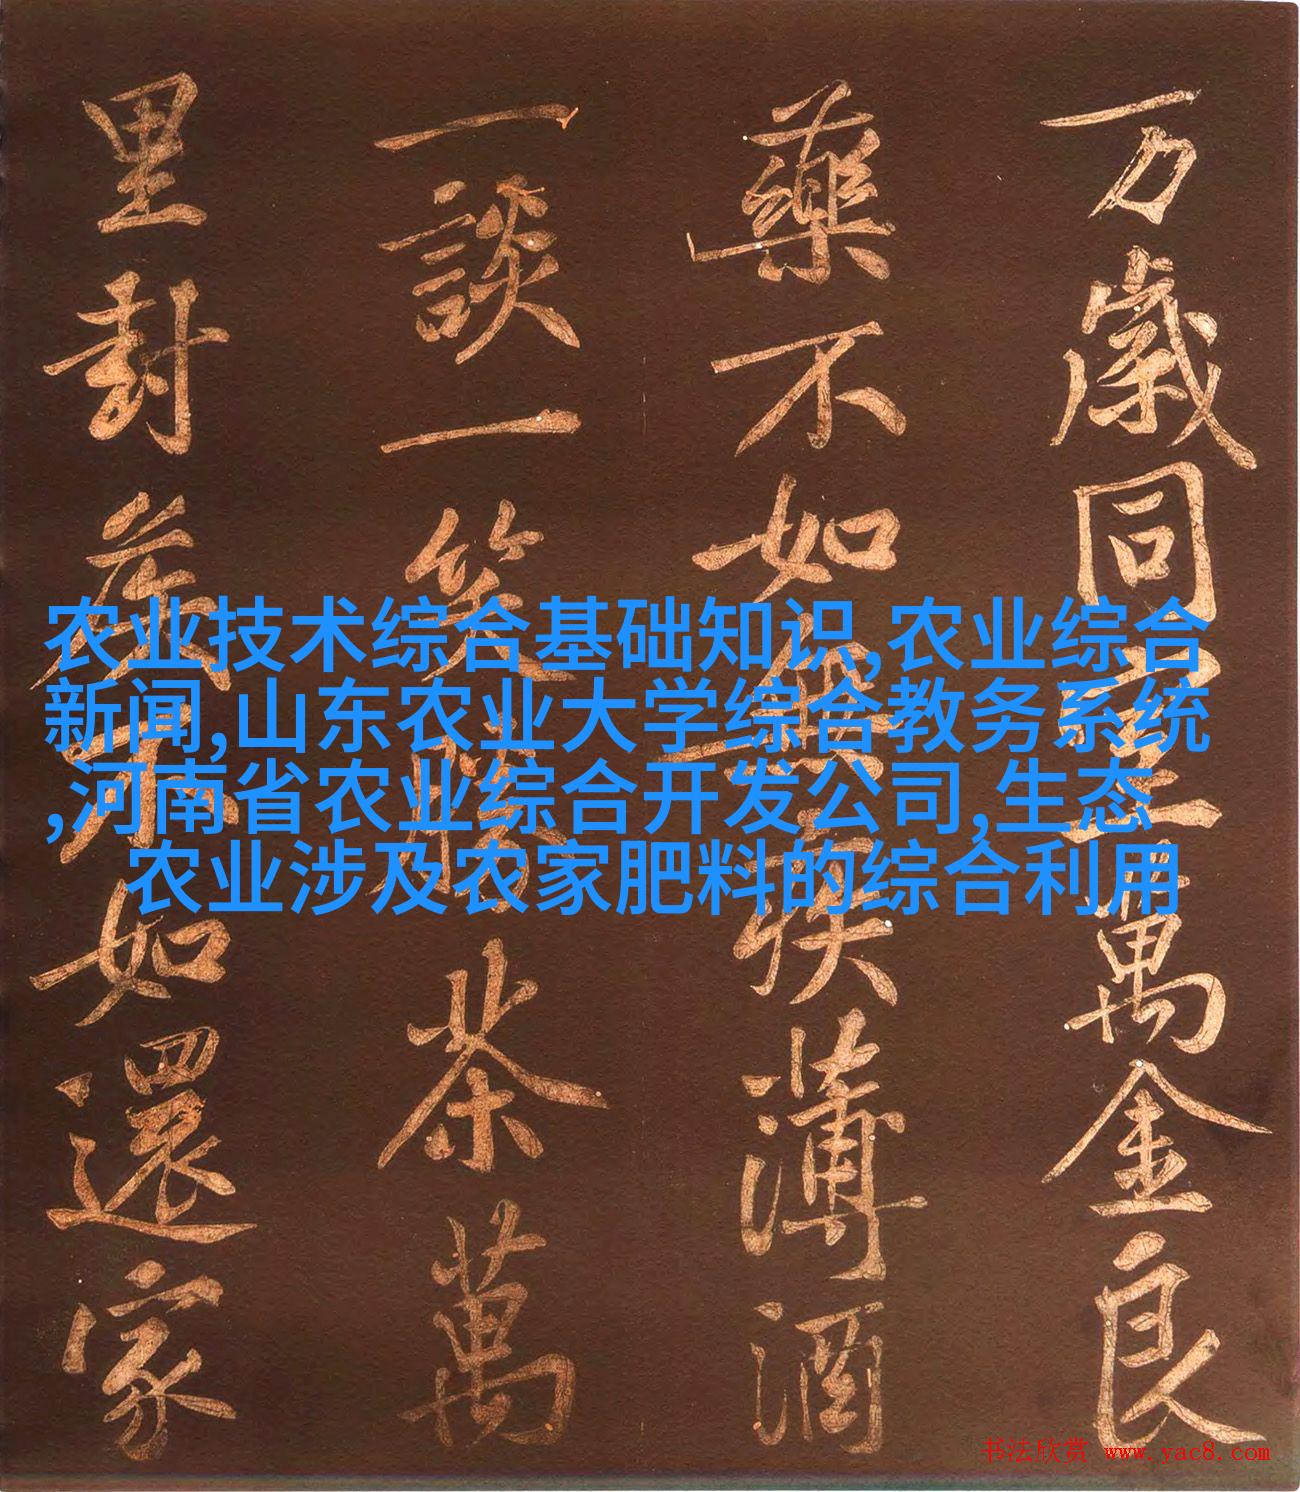 万歲同萬金良
藥不如無疾薄酒
一談一笑勝茶萬
里封侯不如還家
农业技术综合基础知识,农业综合
新闻,山东农业大学综合教务系统
,河南省农业综合开发公司,生态
农业涉及农家肥料的综合利用
书法欣赏 www.yac8.com